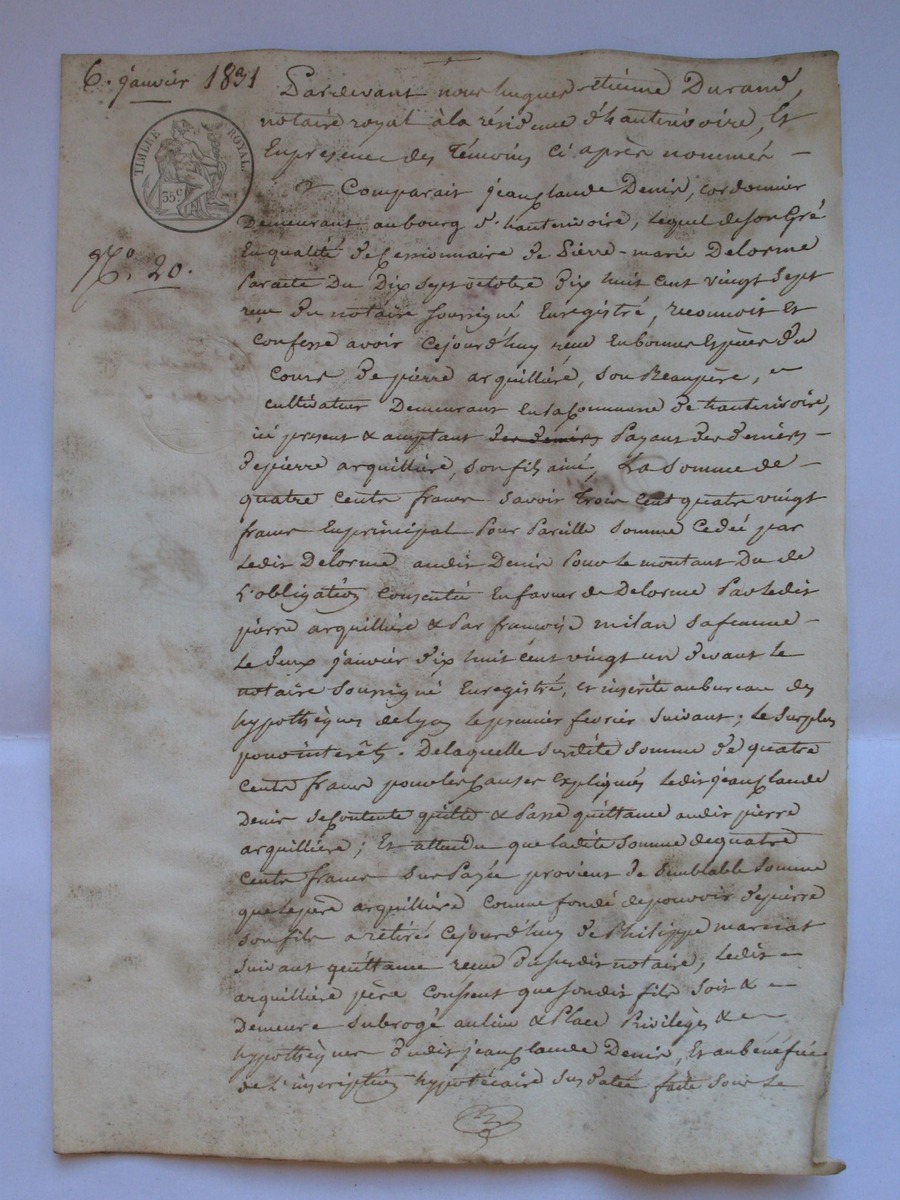 6. janvier 1831
TIMBRE ROYAL
35 c.
N.º 20.
Pardevant nous hugues-étienne Durand,
notaire royal à la résidence d'hauterivoire, Et
En présence des témoins ci après nommés —
Comparait jean claude Denis, cordonnier
Demeurant au bourg d'hauterivoire, lequel de son Gré
En qualité de Cessionnaire de Pierre-marie Delorme
Par acte Du Dix Sept octobre Dix huit Cent vingt Sept
reçu Du notaire soussigné Enregistré, reconnoit Et
Confesse avoir Cejourd'huy reçu En bonnes Espèces du
Cours De pierre arquillière, son Beaupère,
Cultivateur Demeurant En la Commune de hauterivoire,
ici présent & acceptant des deniers Payant des deniers —
De pierre arquillière, son fils ainé, La Somme de —
quatre Cents francs Savoir trois Cent quatre vingt
francs En principal Pour Pareille Somme Cedée par
Ledit Delorme audit Denis Pour le montant Du de
L'obligation Consentie En faveur de Delorme Par Ledit
pierre arquillière & Par françoise milan sa femme —
Le Deux janvier Dix huit Cent vingt un Devant le
notaire Soussigné Enregistré, Et inscrite au bureau des
hypothèques de Lyon le premier fevrier Suivant; Le Surplus
pour intérêts. De laquelle Susdite Somme De quatre
Cents francs pour les Causes Expliquées Ledit jean Claude
Denis Se Contente quitte & Passe quittance audit pierre
arquillière; Et attendu que ladite Somme de quatre
Cents francs Sus Payée provient de Semblable Somme
que le père arquillière Comme fondé de pouvoir De pierre
Son fils a retiré Cejourd'huy De Philippe marcat
Suivant quittance reçue Du Susdit notaire, Ledit —
arquillière père Consent que Sondit fils Soit & —
Demeure Subrogé au lieu & Place Privilèges & —
hypothèques Dudit jean Claude Denis, Et au bénéfice
De L'inscription hypotécaire Susdatée faite Sous Le